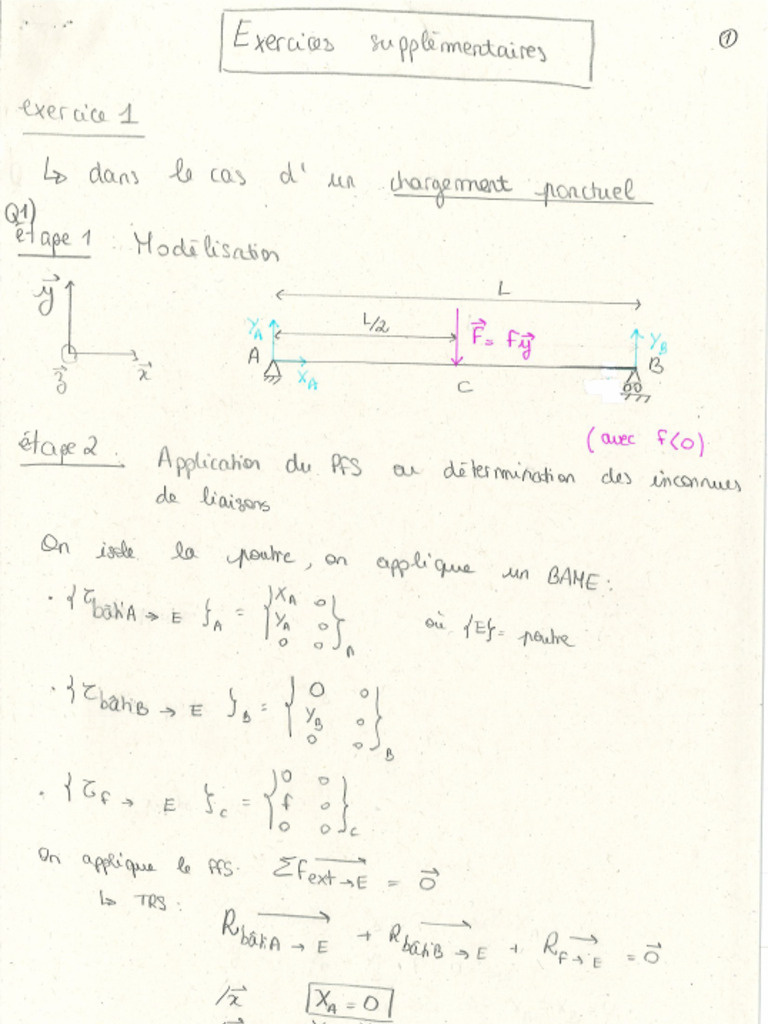 Exercices supplémentaires
①
exercice 1
↳ dans le cas d'un chargement ponctuel
Q1)
étape 1 : Modélisation
y⃗
z⃗
x⃗
L
L/2
Y_A
A
X_A
F⃗ = f y⃗
C
Y_B
B
(avec f<0)
étape 2 : Application du PFS ou détermination des inconnues
de liaisons
On isole la poutre, on applique un BAME :
• {τ bâtiA → E }_A = { X_A 0
Y_A 0
0 0 }_A
où {E} = poutre
• {τ bâtiB → E }_B = { 0 0
Y_B 0
0 0 }_B
• {τ f → E }_C = { 0 0
f 0
0 0 }_C
On applique le PFS. ΣF ext→E = 0⃗
↳ TRS :
R bâtiA → E + R bâtiB → E + R f → E = 0⃗
/x⃗ X_A = 0